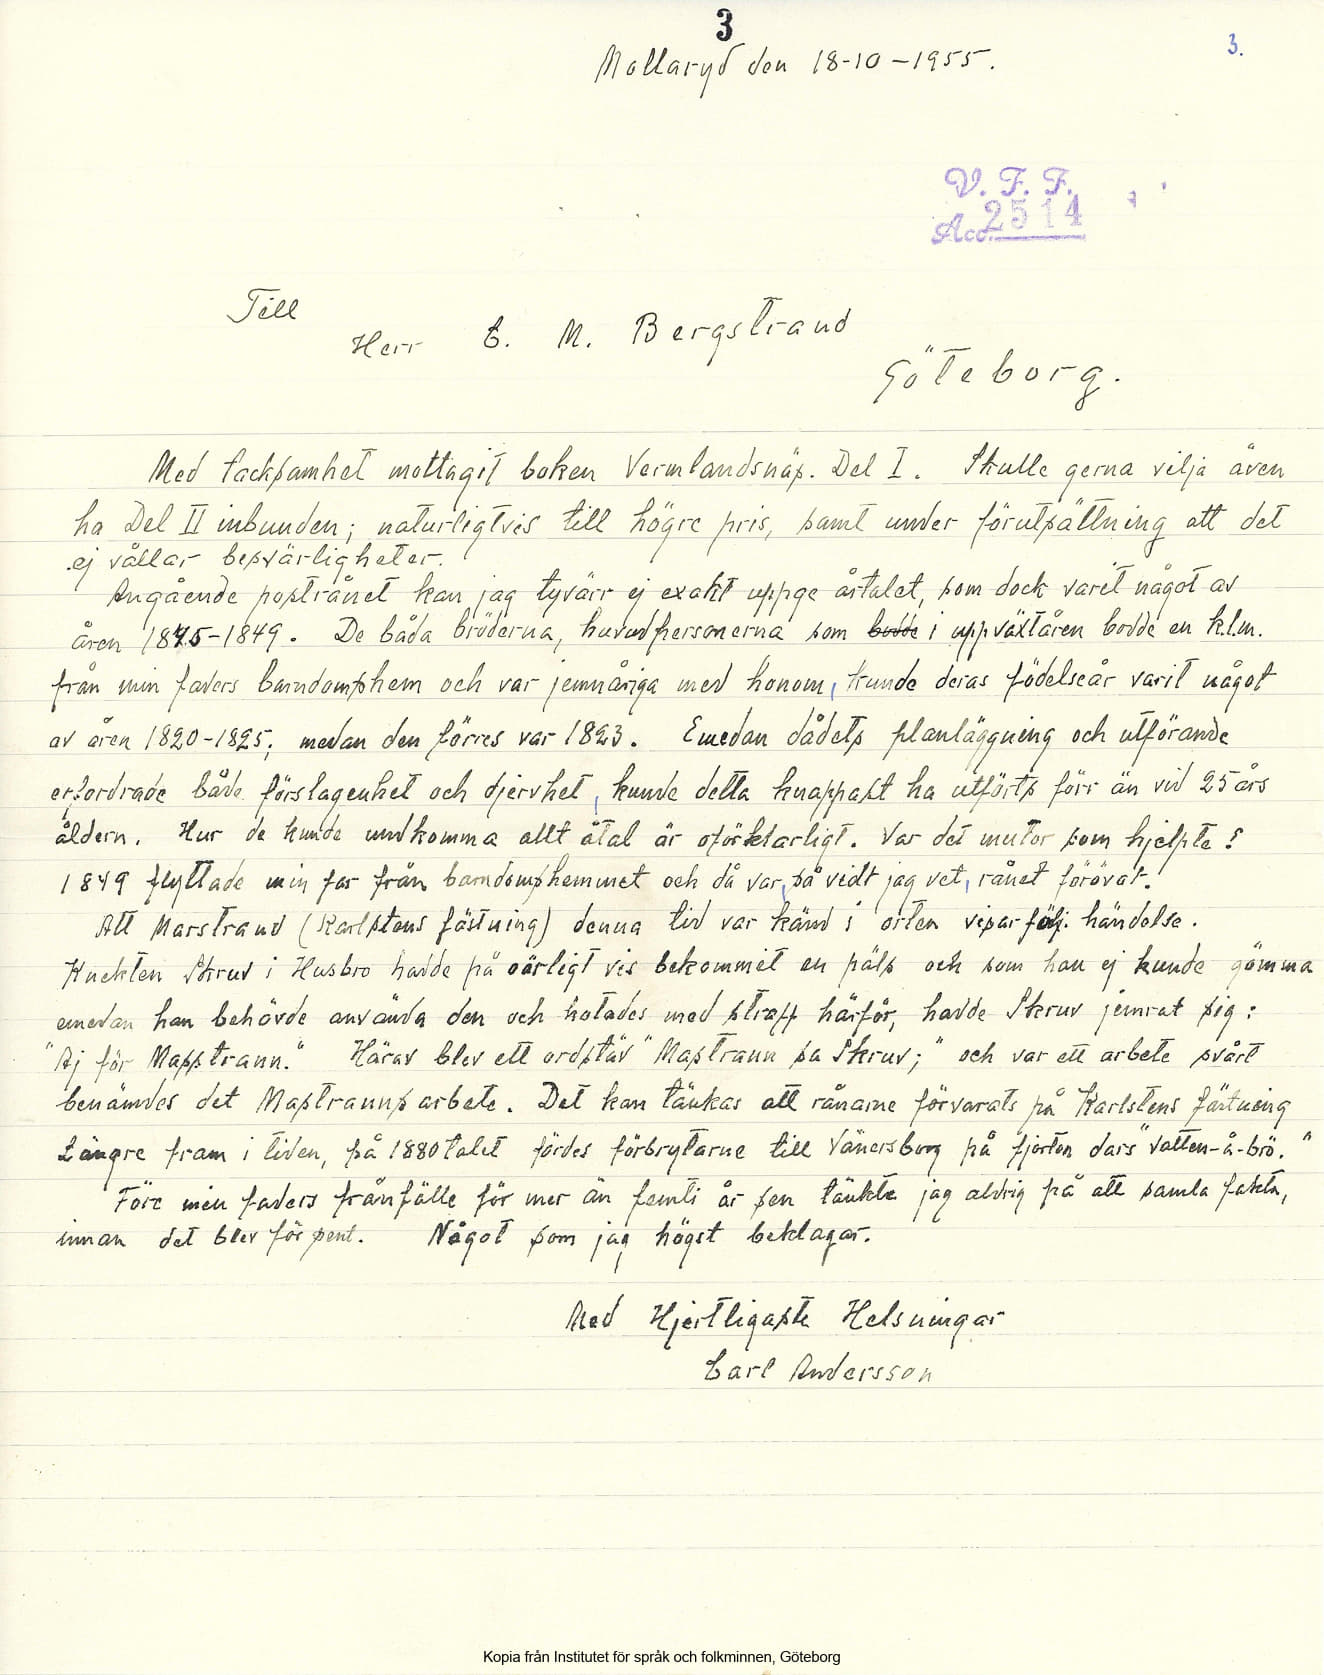 3
3.
Mollaryd den 18-10-1955.
V. F. F.
Acc. 2514
Till
Herr C. M. Bergstrand
Göteborg.
Med tacksamhet mottagit boken Vermlandsnäs. Del I. Skulle gerna vilja även
ha Del II inbunden; naturligtvis till högre pris, samt under förutsättning att det
ej vållar besvärligheter.
Angående postrånet kan jag tyvärr ej exakt uppge årtalet, som dock varit något av
åren 1845-1849. De båda bröderna, huvudpersonerna som bodde i uppväxtåren bodde en k.l.m.
från min faders barndomshem och var jemnåriga med honom, kunde deras födelseår varit något
av åren 1820-1825; medan den förres var 1823. Emedan dådets planläggning och utförande
erfordrade både förslagenhet och djervhet, kunde detta knappast ha utförts förr än vid 25 års
åldern. Hur de kunde undkomma allt åtal är oförklarligt. Var det mutor som hjelpte?
1849 flyttade min far från barndomshemmet och då var, så vidt jag vet, rånet förövat.
Att Marstrand (Karlstens fästning) denna tid var känd i orten visar följ. händelse.
Knekten Skruv i Husbro hadde på oärligt vis bekommit en päls och som han ej kunde gömma
emedan han behövde använda den och hotades med straff härför, hadde Skruv jemrat sig:
"Aj för Masstrann." Härav blev ett ordstäv "Mastrann sa Skruv;" och var ett arbete svårt
benämdes det Mastranns arbete. Det kan tänkas att rånarne förvarats på Karlstens fästning
Längre fram i tiden, på 1880 talet fördes förbrytarne till Vänersborg på fjorton dars "vatten-å-brö."
Före min faders frånfälle för mer än femti år sen tänkte jag aldrig på att samla fakta,
innan det blev för sent. Något som jag högst beklagar.
Med Hjertligaste Helsningar
Carl Andersson
Kopia från Institutet för språk och folkminnen, Göteborg